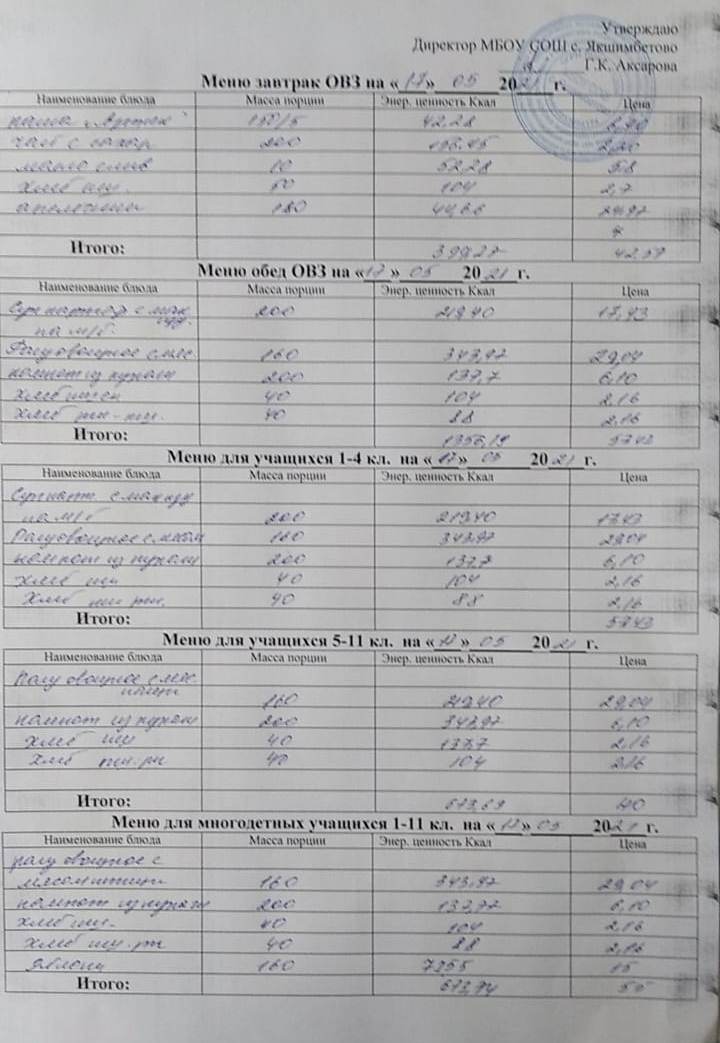 Утверждаю
Директор МБОУ СОШ с. Якшимбетово
Г.К. Аксарова
Меню завтрак ОВЗ на « 17 » 05 2021 г.
Наименование блюда Масса порции Энер. ценность Ккал Цена
каша 150/5 42,28
чай с сахар 200 2,20
масло слив 10 52,28 5,8
хлеб пш. 50 104 2,7
апельсины 180 44,66
Итого: 399,27 42,57
Меню обед ОВЗ на « 17 » 05 2021 г.
Наименование блюда Масса порции Энер. ценность Ккал Цена
Суп картоф с мак. 200 219,40 17,43
изд.
на м/б.
Рагу овощное с мяс. 160 343,97 29,04
компот из кураги 200 137,7 6,10
хлеб пшен 40 104 2,16
хлеб рж-пш. 40 88 2,16
Итого: 1356,19 57,43
Меню для учащихся 1-4 кл. на « 17 » 05 2021 г.
Наименование блюда Масса порции Энер. ценность Ккал Цена
Суп карт с мак изд
на м/б 200 219,40 17,43
Рагу овощное с мясом 160 343,97 29,04
компот из кураги 200 137,7 6,10
хлеб пш 40 104 2,16
хлеб пш рж. 40 88 2,16
Итого: 57,43
Меню для учащихся 5-11 кл. на « 17 » 05 2021 г.
Наименование блюда Масса порции Энер. ценность Ккал Цена
Рагу овощное с мяс.
160 219,40 29,04
компот из кураги 200 343,97 6,10
хлеб пш 40 137,7 2,16
хлеб пш. рж 40 104 2,16
Итого: 673,69 40
Меню для многодетных учащихся 1-11 кл. на « 17 » 05 2021 г.
Наименование блюда Масса порции Энер. ценность Ккал Цена
рагу овощное с
мясом птицы 160 343,97 29,04
компот из кураги 200 137,77 6,10
хлеб пш. 40 104 2,16
хлеб пш. рж 40 88 2,16
яблоки 160 15
Итого: 673,74 55